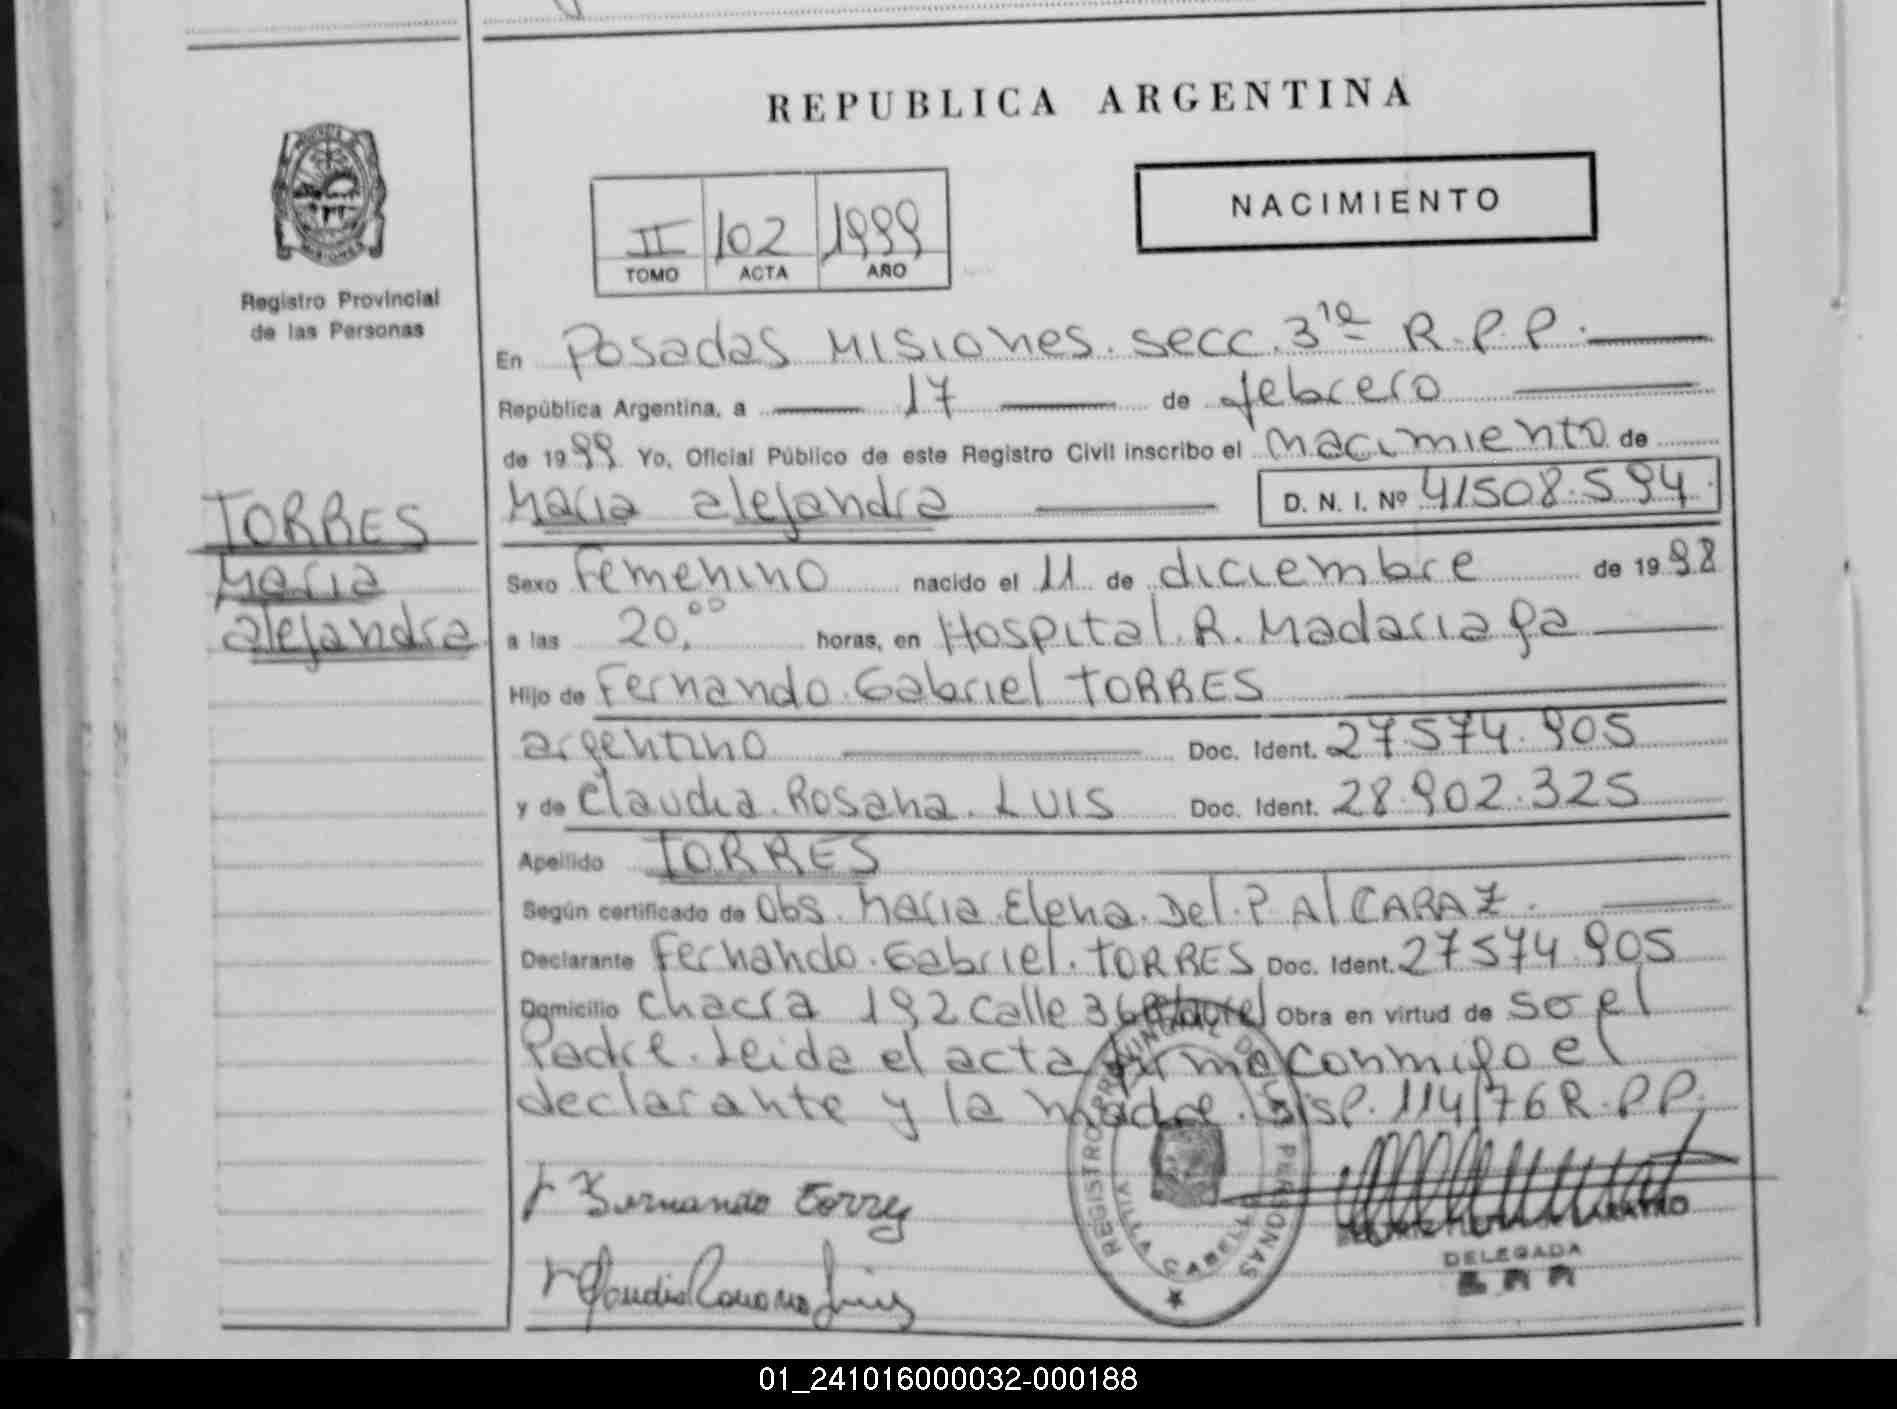 REPUBLICA ARGENTINA
NACIMIENTO
II 102 1999
TOMO ACTA AÑO
Registro Provincial
de las Personas
En Posadas Misiones. secc. 3ra R.P.P.
República Argentina, a 17 de febrero
de 1999 Yo, Oficial Público de este Registro Civil inscribo el nacimiento de
Maria alejandra D. N. I. Nº 41508.594
TORRES
Maria
alejandra
Sexo Femenino nacido el 11 de diciembre de 1998
a las 20,00 horas, en Hospital R. Madariaga
Hijo de Fernando Gabriel TORRES
argentino Doc. Ident. 27574.905
y de Claudia Rosana LUIS Doc. Ident. 28.902.325
Apellido TORRES
Según certificado de Obs. Maria Elena Del P. AlCARAZ.
Declarante Fernando Gabriel TORRES Doc. Ident. 27574.905
Domicilio Chacra 192 calle Obra en virtud de ser el
Padre. Leida el acta firma conmigo el
declarante y la madre. Disp. 114/76 R.P.P.
Fernando Torres
Claudia Rosana Luis
REGISTRO PROVINCIAL DE LAS PERSONAS
DELEGADA
01_241016000032-000188